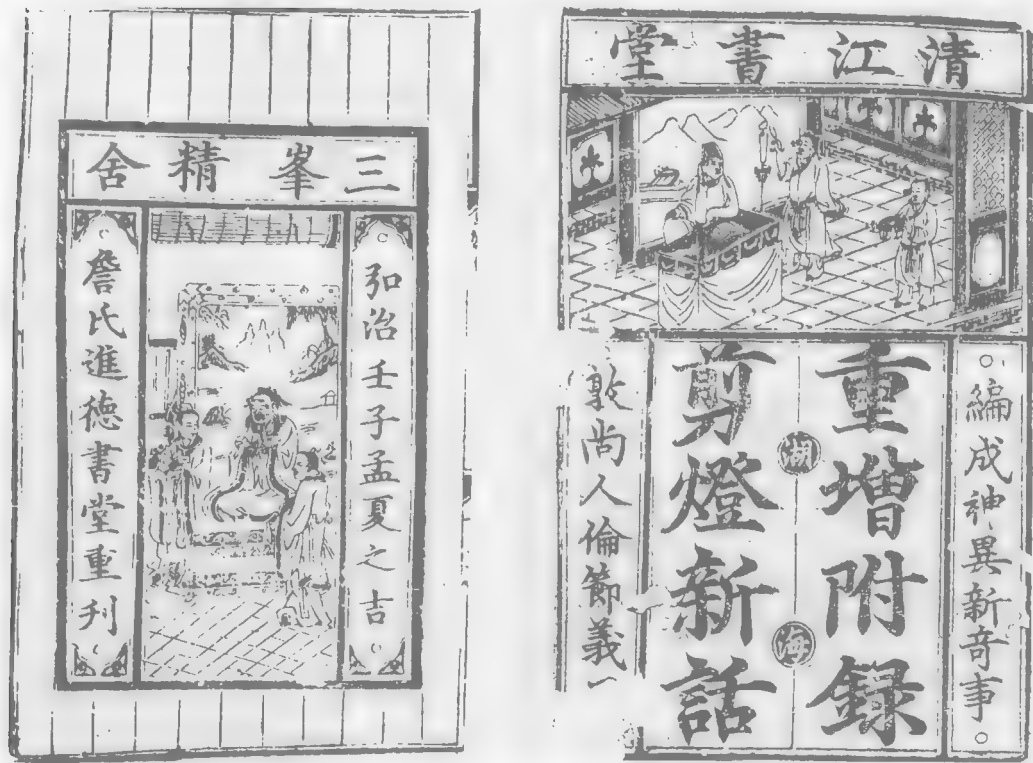 清江書堂
編成神異新奇事
重增附録
湖海
剪燈新話
敦尚人倫節義
三峯精舍
弘治壬子孟夏之吉
詹氏進德書堂重刊